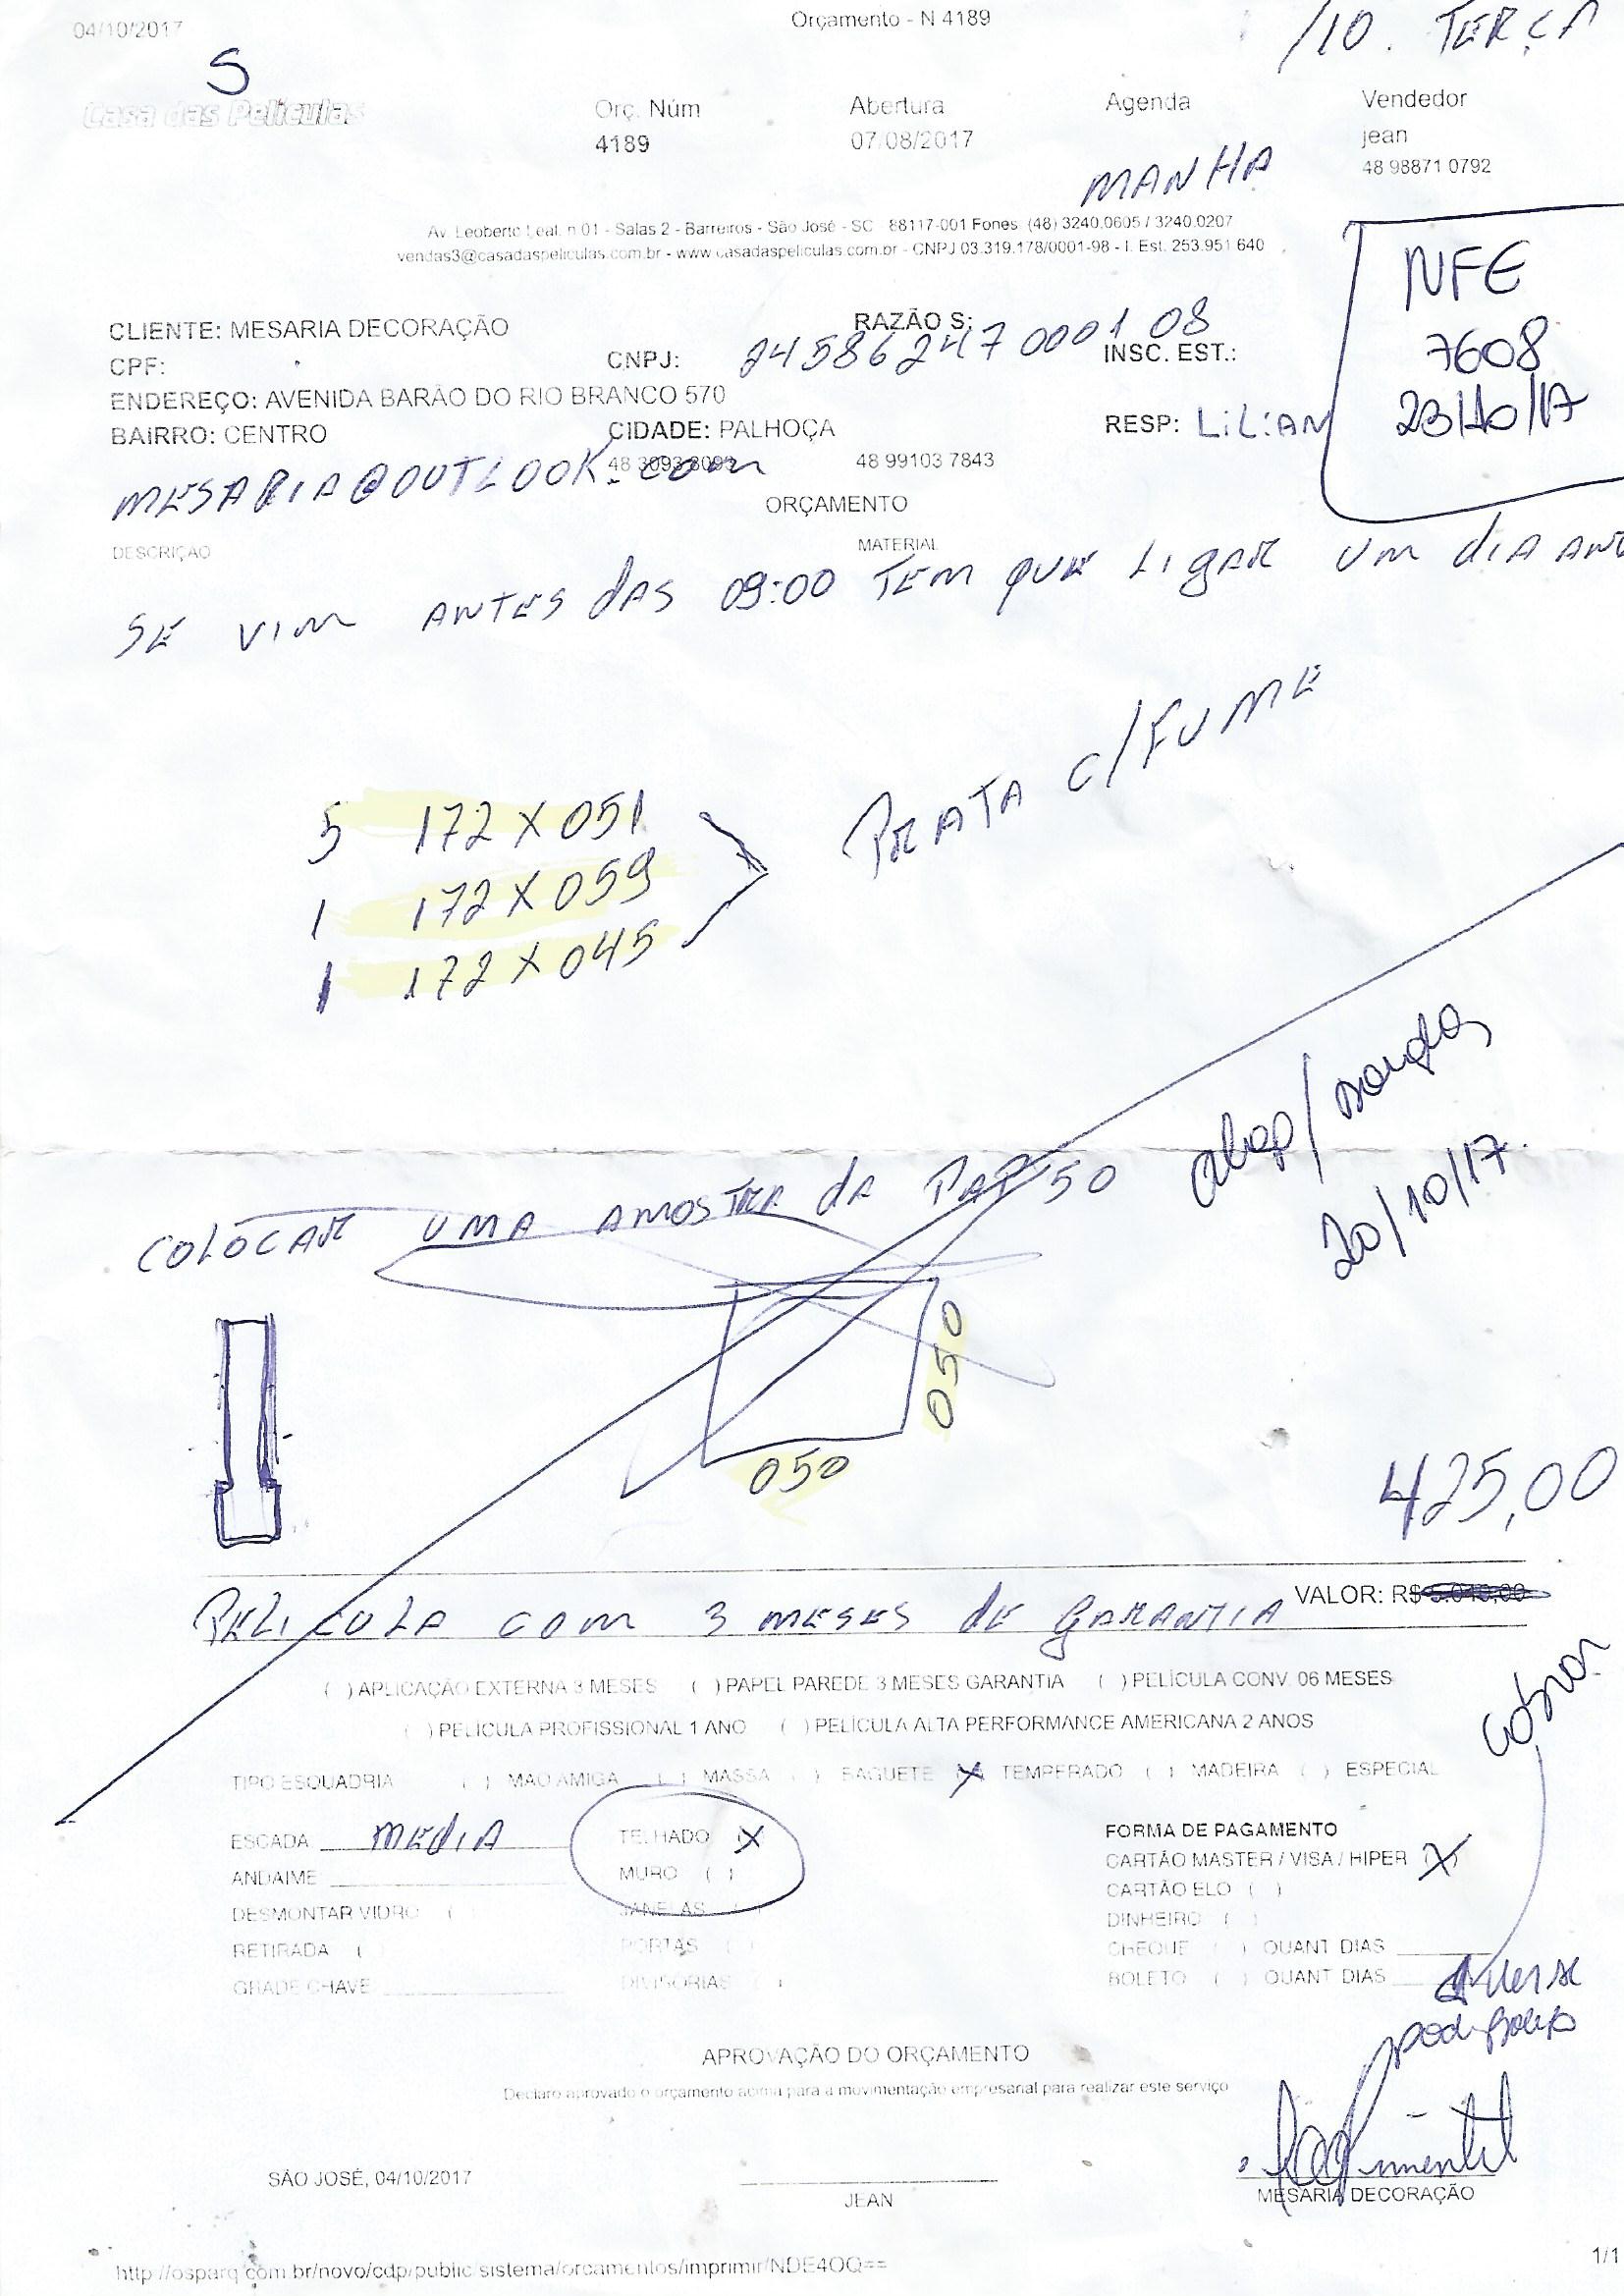 04/10/2017
Orçamento - N 4189
/10. TERÇA
S
Casa das Películas
Orç. Núm
Abertura
Agenda
Vendedor
4189
07/08/2017
jean
MANHA
48 98871 0792
Av. Leoberto Leal, n 01 - Salas 2 - Barreiros - São José - SC 88117-001 Fones (48) 3240.0605 / 3240.0207
vendas3@casadaspeliculas.com.br - www.casadaspeliculas.com.br - CNPJ 03.319.178/0001-98 - I. Est. 253.951 640
NFE
7608
23/10/17
CLIENTE: MESARIA DECORAÇÃO
RAZÃO S:
CPF:
CNPJ: 24586247 0001 08
INSC. EST.:
ENDEREÇO: AVENIDA BARÃO DO RIO BRANCO 570
BAIRRO: CENTRO
CIDADE: PALHOÇA
RESP: LiLiAN
48 99103 7843
MESARIA@OUTLOOK.com
ORÇAMENTO
DESCRIÇÃO
MATERIAL
SE VIM ANTES dAS 09:00 TEM QUE LIgAR UM dIA ANT
5 172 X 051
1 172 X 059
1 172 X 045
PRATA C/FUME
20/10/17.
COLOCAR UMA AMOSTRA dA 50
050
050
425,00
VALOR: R$ 5.040,00
PELICULA COM 3 MESES dE gARANTIA
( ) APLICAÇÃO EXTERNA 3 MESES ( ) PAPEL PAREDE 3 MESES GARANTIA ( ) PELÍCULA CONV. 06 MESES
( ) PELÍCULA PROFISSIONAL 1 ANO ( ) PELÍCULA ALTA PERFORMANCE AMERICANA 2 ANOS
cobrar
TIPO ESQUADRIA ( ) MAO AMIGA ( ) MASSA ( ) BAGUETE (X) TEMPERADO ( ) MADEIRA ( ) ESPECIAL
ESCADA MEdIA
TELHADO (X)
FORMA DE PAGAMENTO
ANDAIME
MURO ( )
CARTÃO MASTER / VISA / HIPER (X)
CARTÃO ELO ( )
DESMONTAR VIDRO (
JANELAS ( )
DINHEIRO ( )
RETIRADA (
PORTAS ( )
CHEQUE ( ) QUANT DIAS
GRADE CHAVE
DIVISÓRIAS ( )
BOLETO ( ) QUANT DIAS
APROVAÇÃO DO ORÇAMENTO
Declaro aprovado o orçamento acima para a movimentação empresarial para realizar este serviço
SÃO JOSÉ, 04/10/2017
JEAN
MESARIA DECORAÇÃO
http://osparq.com.br/novo/cdp/public/sistema/orcamentos/imprimir/NDE4OQ==
1/1